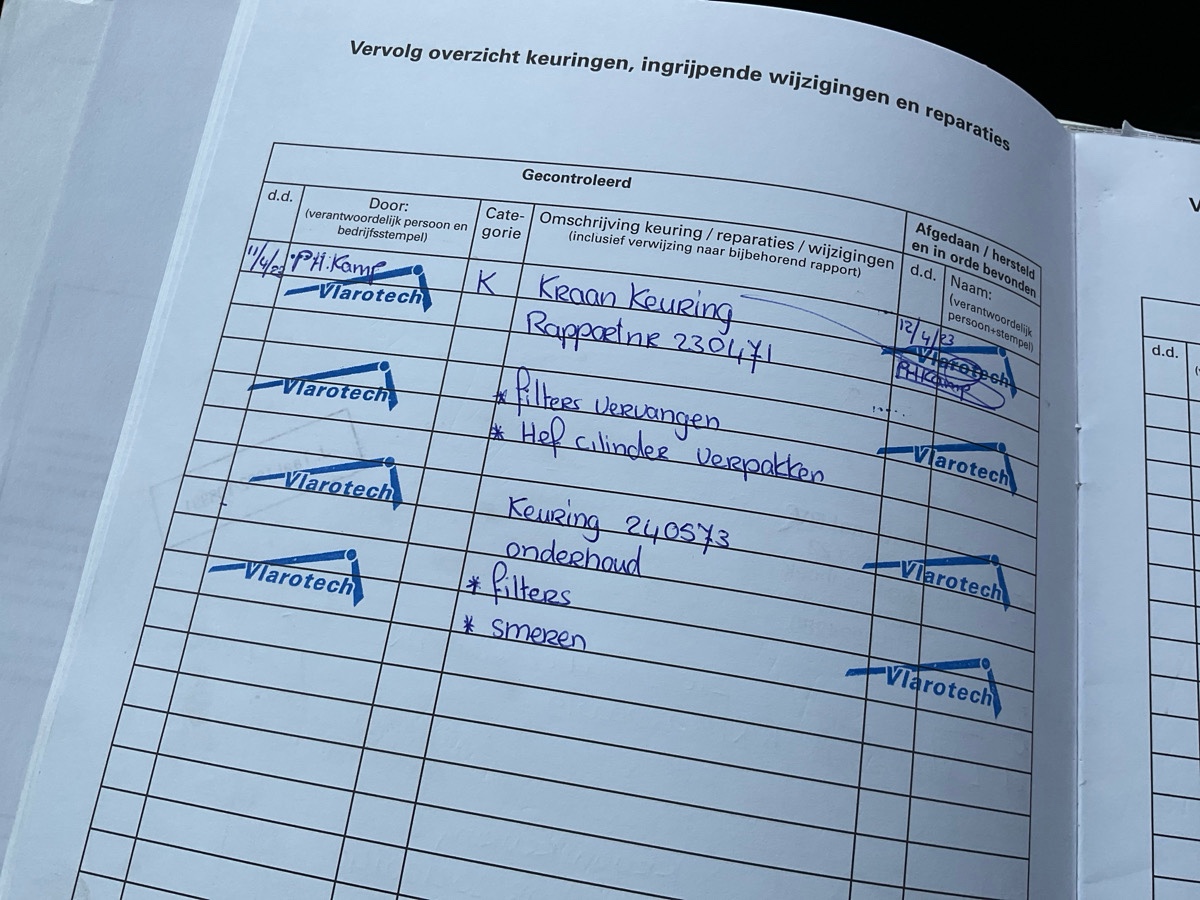 Vervolg overzicht keuringen, ingrijpende wijzigingen en reparaties
Gecontroleerd
Afgedaan / hersteld
en in orde bevonden
d.d.
Door:
(verantwoordelijk persoon en
bedrijfsstempel)
Cate-
gorie
Omschrijving keuring / reparaties / wijzigingen
(inclusief verwijzing naar bijbehorend rapport)
d.d.
Naam:
(verantwoordelijk
persoon+stempel)
11/4/23
PH.Kamp
Vlarotech
K
Kraan Keuring
Rapportnr 230471
12/4/23
Vlarotech
PH.Kamp
Vlarotech
* filters vervangen
* Hef cilinder verpakken
Vlarotech
Vlarotech
Keuring 240573
onderhoud
Vlarotech
Vlarotech
* filters
* smeren
Vlarotech
V
d.d.